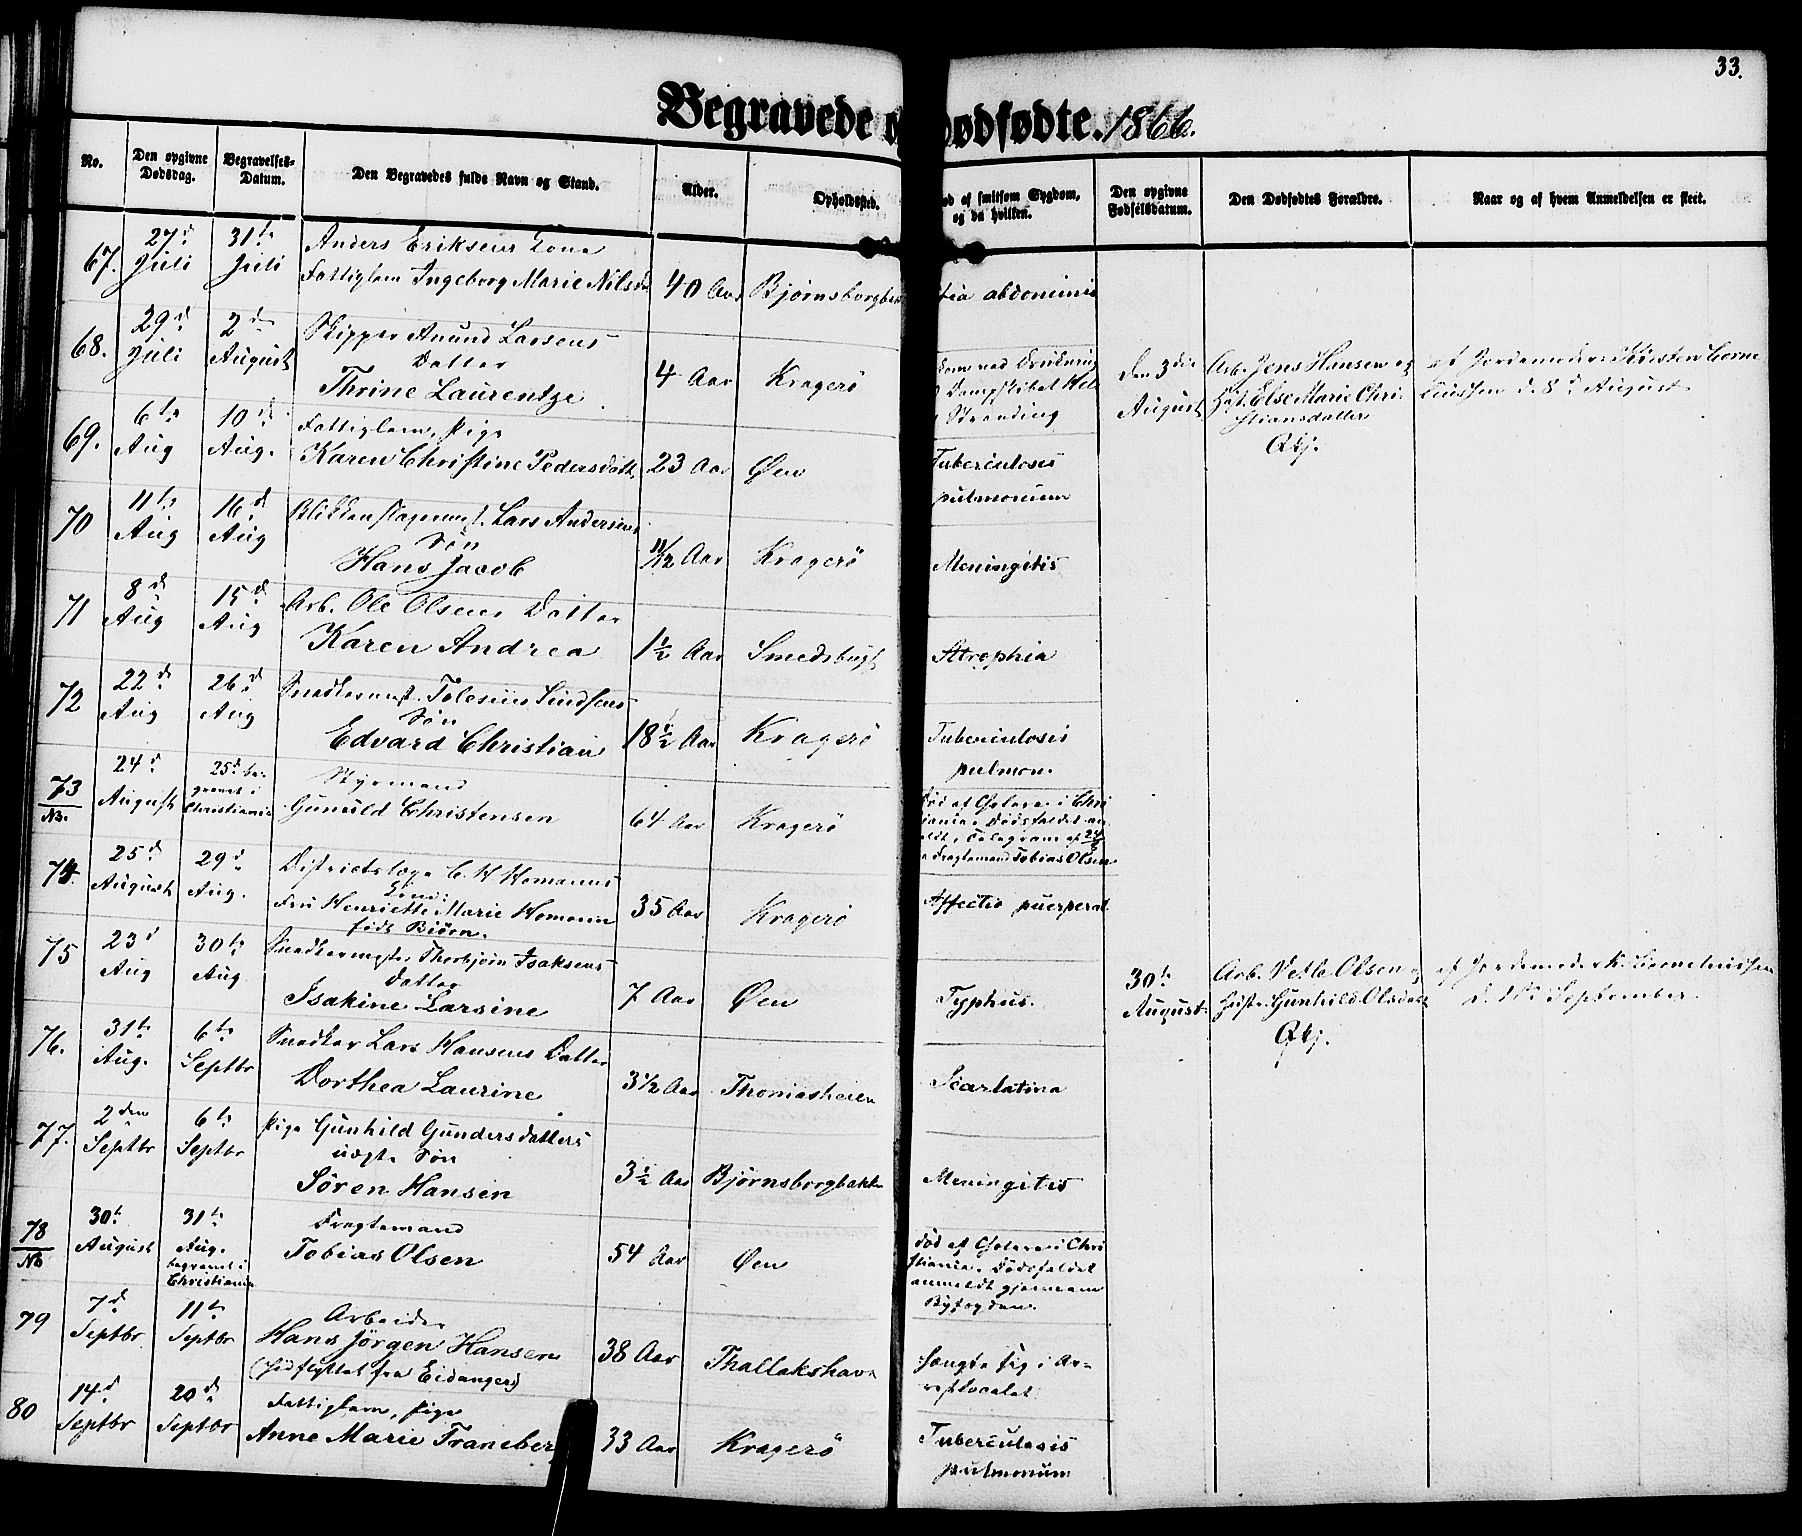 33.
Begravede o dødfødte. 1866.
No. Den opgivne Dødsdag. Begravelses-Datum. Den Begravedes fulde Navn og Stand. Alder. Opholdssted. ød af smitsom Sygdom, og da hvilken. Den opgivne Fødselsdatum. Den Dødfødtes Forældre. Naar og af hvem Anmeldelsen er skeet.
67. 27d Juli 31te Juli Anders Eriksens Kone
Fattiglem Ingeborg Marie Nilsd 40 Aar Bjørnsborgbak tia abdominis
68. 29d Juli 2den August Skipper Anund Larsens
Datter
Thrine Laurentze 4 Aar Kragerö kom ved Drukning
Dampskibet
Stranding
Den 3die August Arb. Jens Hansen og
Hust. Else Marie Chri-
stiansdatter
Qkj.
af Jordemoder Kirsten Corne
liussen d. 8d August
69. 6te Aug 10d Aug. Fattiglem, Pige
Karen Christine Pedersdatt. 23 Aar Øen Tuberculosis
pulmonum
70 11te Aug 16d Aug Blikkenslagermest. Lars Andersens
Sön
Hans Jacob 11/12 Aar Kragerö Meningitis
71 8d Aug 15d Aug Arb. Ole Olsens Datter
Karen Andrea 1½ Aar Smedsbugt Atrophia
72 22d Aug 26d Aug Snedkermest. Tolesius Sindsens
Sön
Edvard Christian 18½ Aar Kragerö Tuberculosis
pulmon.
73 Nb. 24d August 25d be-
gravet i
Christiania Styrmand
Gunuld Christensen 64 Aar Kragerö Död af Cholera i Chri
iania. Dödsfaldet an
eldt, Telegram af 24/8
Fragtemand Tobias Olsen
74. 25d August 29d Aug. Districtslæge C. H Homanns
Kone:
Fru Henriette Marie Homann
født Biörn. 35 Aar Kragerö Affectio puerperal
75 23d Aug 30te Aug Snedkermester Thorbjörn Isaksens
Datter
Isakine Larsine 7 Aar Øen Typhus.
30te August Arb. Vetle Olsen og
Hustr. Gunhild Olsdatt
Qkj.
af Jordemoder K. Corneliussen
d. 1te September
76. 31te Aug. 6te Septbr Snedker Lars Hansens Datter
Dorthea Laurine 3½ Aar Thomasheien Scarlatina
77. 2den Septbr 6te Septbr Pige Gunhild Gundersdatters
uægte Sön
Sören Hansen 3½ Aar Bjørnsborgbakke Meningitis
78 Nb 30te August 31te Aug.
begravet i
Christiania Fragtemand
Tobias Olsen 54 Aar Øen död af Cholera i Chri
stiania. Dödsfaldet
anmeldt gjennem
Byfogden.
79 7d Septbr 11te Septbr Arbeider
Hans Jörgen Hansen
(Hidflyttet fra Eidanger) 38 Aar Thallakshavn hængte sig i Ar-
restlocalet
80 14d Septbr 20d Septbr Fattiglem, Pige
Anne Marie Traneberg 33 Aar Kragerö Tuberculosis
pulmonum